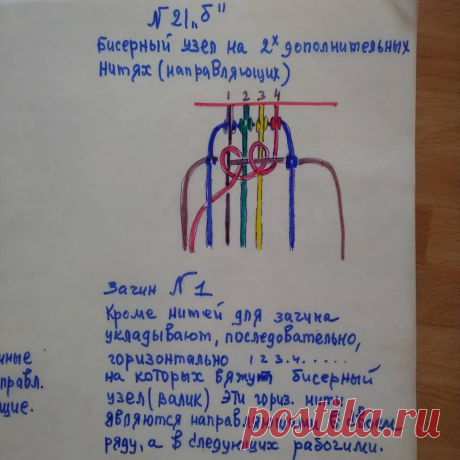 N 21 „б"
Бисерный узел на 2х дополнительных
нитях (направляющих)
1 2 3 4
Загин N 1
Кроме нитей для загина
укладывают, последовательно,
горизонтально 1 2 3. 4. . . . .
на которых вяжут бисерный
узел (валик) Эти гориз. нити
являются направляющими в своем
ряду, а в следующих рабочими.
нные
правл.
щие.
postila.ru